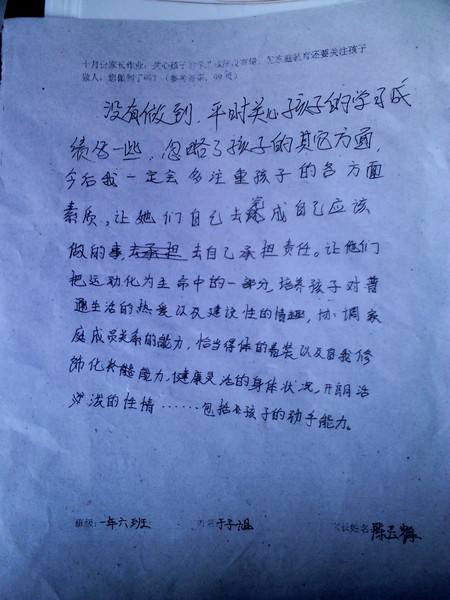 十月份家长作业：关心孩子的学习成绩没有错，但家庭教育还要关注孩子
做人，您做到了吗？（参考答案，99页）
没有做到，平时关心孩子的学习成
绩多一些，忽略了孩子的其它方面，
今后我一定会多注重孩子的各方面
素质，让她们自己去完成自己应该
做的事去承担去自己承担责任。让他们
把运动化为生命中的一部分，培养孩子对普
通生活的热爱以及建设性的情趣，协调家
庭成员关系的能力，恰当得体的着装以及自我修
饰化妆能能力，健康灵活的身体状况，开朗活
泼的性情……包括孩子的动手能力。
班级：一年六班 姓名 于子 家长姓名 陈玉